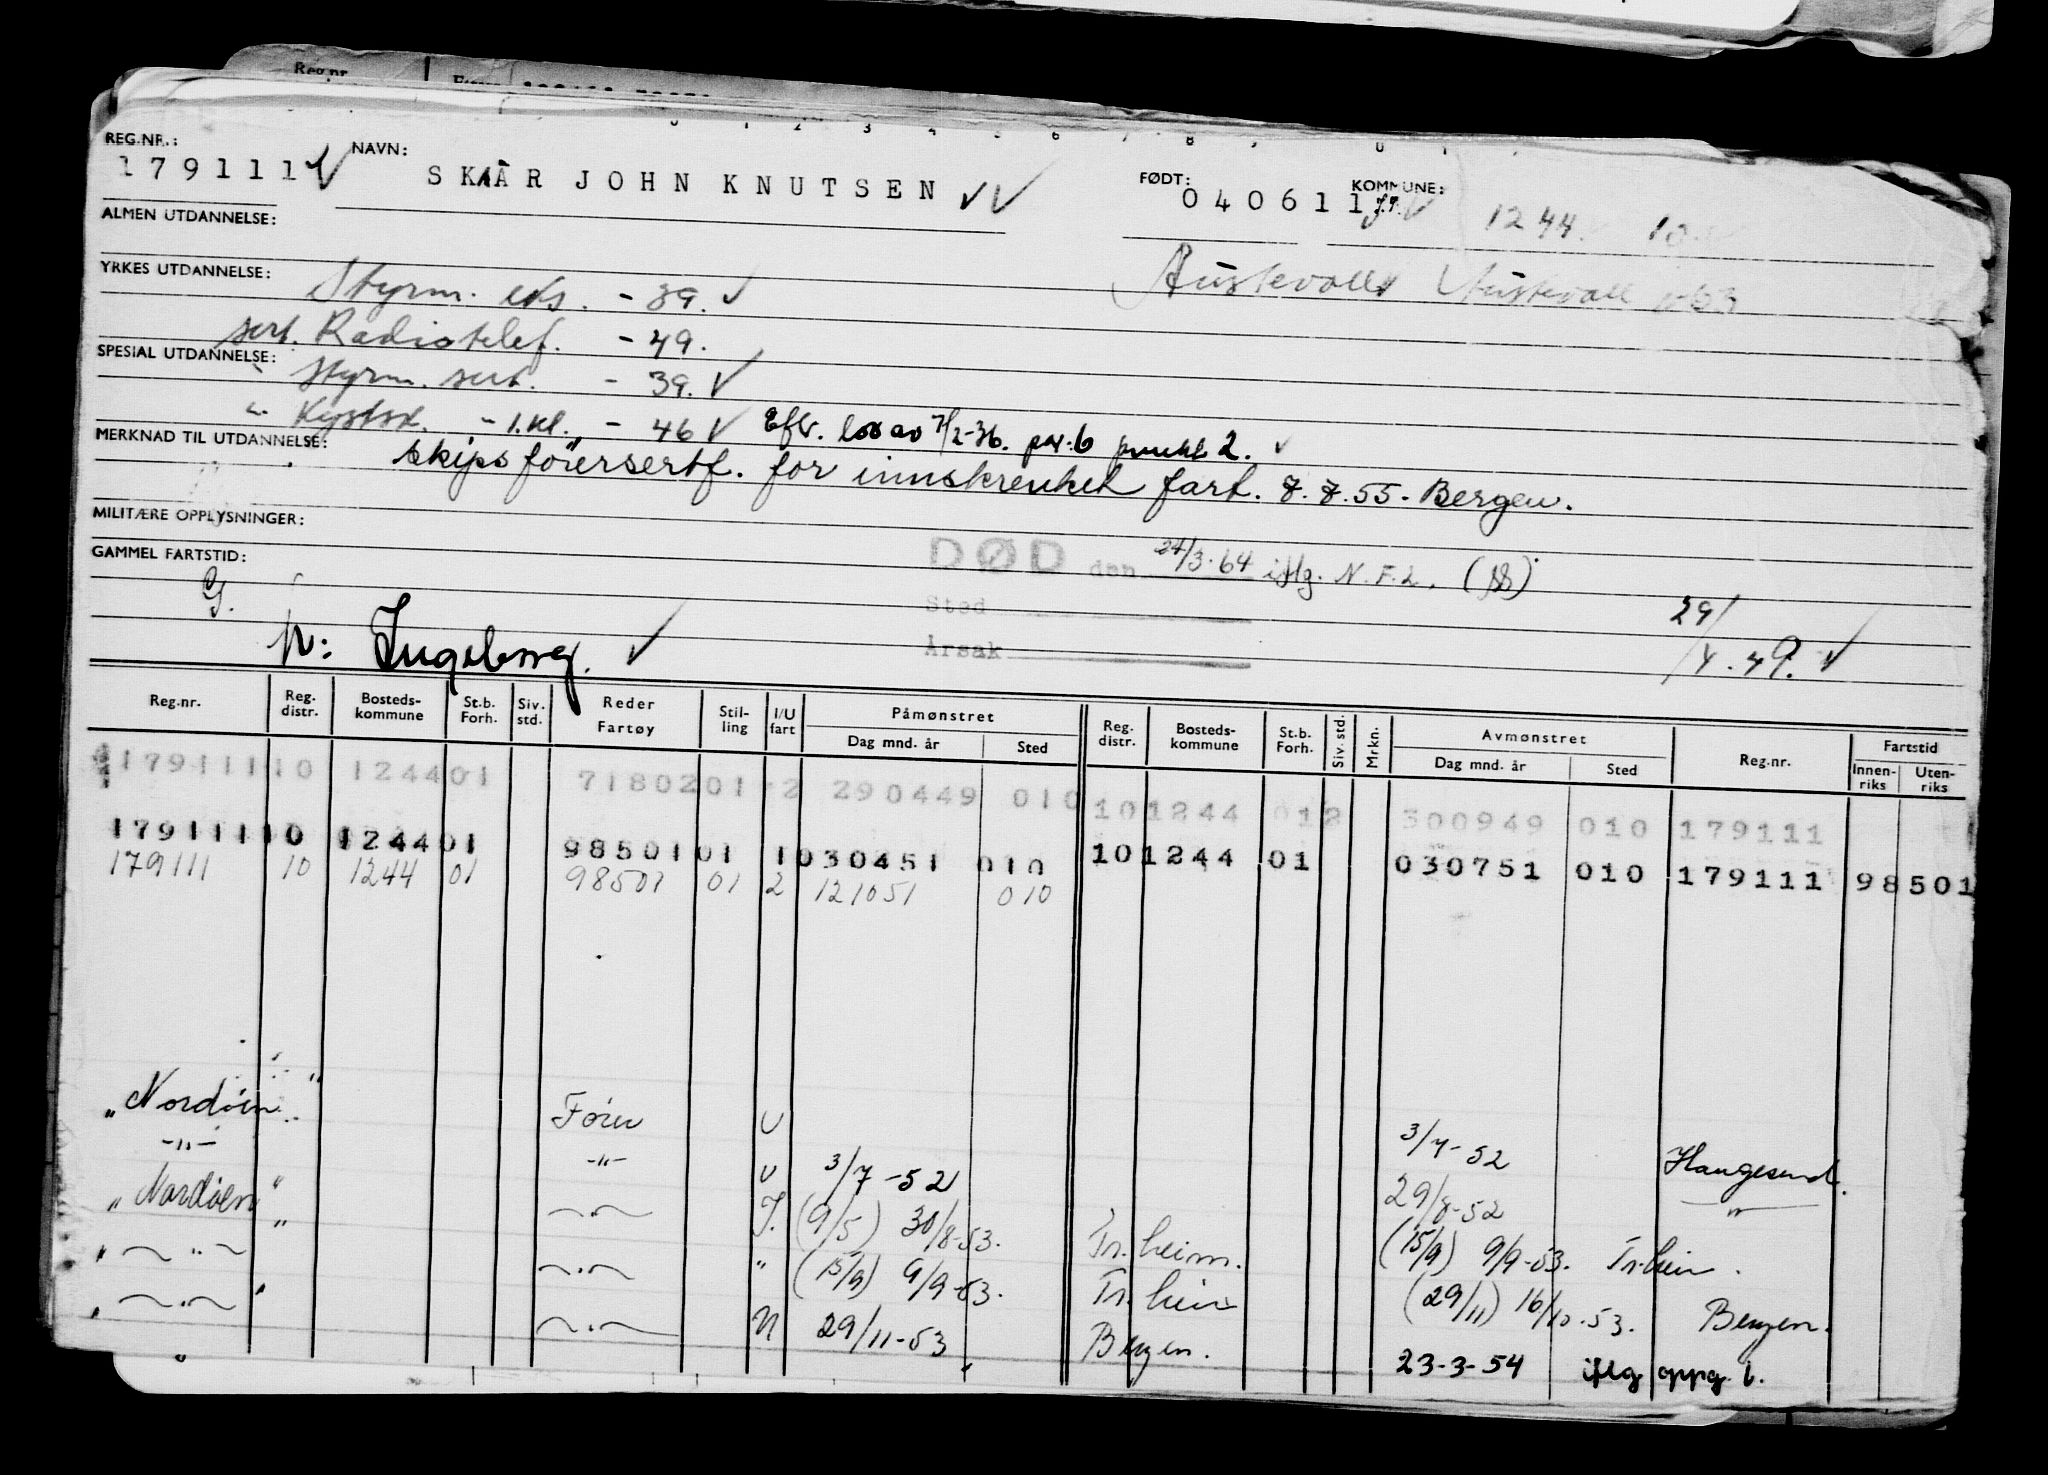 Reg.nr.
REG.NR.: NAVN: FØDT: KOMMUNE:
179111 SKAAR JOHN KNUTSEN 040611 1244
ALMEN UTDANNELSE:
Austevoll Austevoll
YRKES UTDANNELSE: Styrm. eks. - 39.
sert. Radiotelef. - 49.
SPESIAL UTDANNELSE:
" styrm. sert. - 39.
" Kystsk. - 1.kl. - 46 Eftr. lov av 7/2-36. par. 6 punkt 2.
MERKNAD TIL UTDANNELSE:
skipsførersertf. for innskrenket fart. 7.7.55. Bergen.
MILITÆRE OPPLYSNINGER:
DØD den 24/3-64 iflg. N.F.L.
GAMMEL FARTSTID:
Sted
G.
Årsak
M: Ingeborg. 29/4.49.
Reg.nr. Reg. distr. Bosteds-kommune St.b. Forh. Siv. std. Reder Fartøy Stil-ling I/U fart Påmønstret Dag mnd. år Sted Reg. distr. Bosteds-kommune St.b. Forh. Siv. std. Mrkn. Avmønstret Dag mnd. år Sted Reg.nr. Fartstid Innen-riks Uten-riks
179111 10 1244 01 71802 01 2 290449 010 10 1244 01 2 300949 010 179111
179111 10 1244 01 98501 01 1 030451 010 10 1244 01 030751 010 179111 98501
179111 10 1244 01 98501 01 2 121051 010
"Nordøen" Fører U 3/7-52 Haugesund.
-"- -"- U 3/7-52 29/8-52 "
"Nordøen" -"- I. (9/5) 30/8-53. Tr.heim. (15/9) 9/9-53. Tr.heim.
" -"- -"- " (15/9) 9/9-53. Tr.heim (29/11) 16/10-53. Bergen.
" -"- " -"- U 29/11-53 Bergen. 23-3-54 iflg oppg. b.